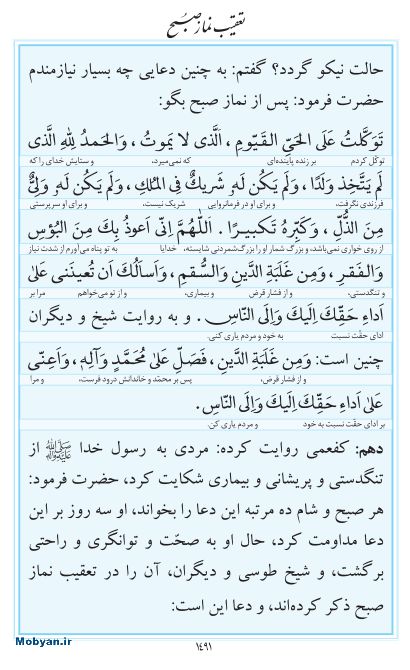 تعقیب نماز صبح
حالت نیکو گردد؟ گفتم: به چنین دعایی چه بسیار نیازمندم
حضرت فرمود: پس از نماز صبح بگو:
تَوَكَّلْتُ عَلَى الْحَيِّ الْقَيُّومِ، الَّذي لا يَمُوتُ، وَالْحَمْدُ لِلّٰهِ الَّذي
توکّل کردم بر زنده پاینده‌ای که نمی‌میرد، و ستایش خدای را که
لَمْ يَتَّخِذْ وَلَدًا، وَلَمْ يَكُنْ لَهُ شَريكٌ فِي الْمُلْكِ، وَلَمْ يَكُنْ لَهُ وَلِيٌّ
فرزندی نگرفت، و برای او در فرمانروایی شریک نیست، و برای او سرپرستی
مِنَ الذُّلِّ، وَكَبِّرْهُ تَكْبيرًا. اَللّٰهُمَّ اِنّي اَعوذُ بِكَ مِنَ الْبُؤْسِ
از روی خواری نمی‌باشد، و بزرگ شمار او را بزرگ‌شمردنی شایسته، خدایا به تو پناه می‌آورم از شدت نیاز
وَالْفَقْرِ، وَمِنْ غَلَبَةِ الدَّيْنِ وَالسُّقْمِ، وَاَسْاَلُكَ اَنْ تُعينَني عَلىٰ
و تنگدستی، و از فشار قرض و بیماری، و از تو می‌خواهم مرا بر
اَداءِ حَقِّكَ اِلَيْكَ وَاِلَى النّاسِ. و به روایت شیخ و دیگران
ادای حقّت نسبت به خود و مردم یاری کنی.
چنین است: وَمِنْ غَلَبَةِ الدَّيْنِ، فَصَلِّ عَلىٰ مُحَمَّدٍ وَآلِهِ، وَاَعِنّي
و از فشار قرض، پس بر محمّد و خاندانش درود فرست، و مرا
عَلىٰ اَداءِ حَقِّكَ اِلَيْكَ وَاِلَى النّاسِ.
بر ادای حقّت نسبت به خود و مردم یاری کن.
دهم: کفعمی روایت کرده: مردی به رسول خدا ﷺ از
تنگدستی و پریشانی و بیماری شکایت کرد، حضرت فرمود:
هر صبح و شام ده مرتبه این دعا را بخواند، او سه روز بر این
دعا مداومت کرد، حال او به صحّت و توانگری و راحتی
برگشت، و شیخ طوسی و دیگران، آن را در تعقیب نماز
صبح ذکر کرده‌اند، و دعا این است:
۱۴۹۱
Mobyan.ir